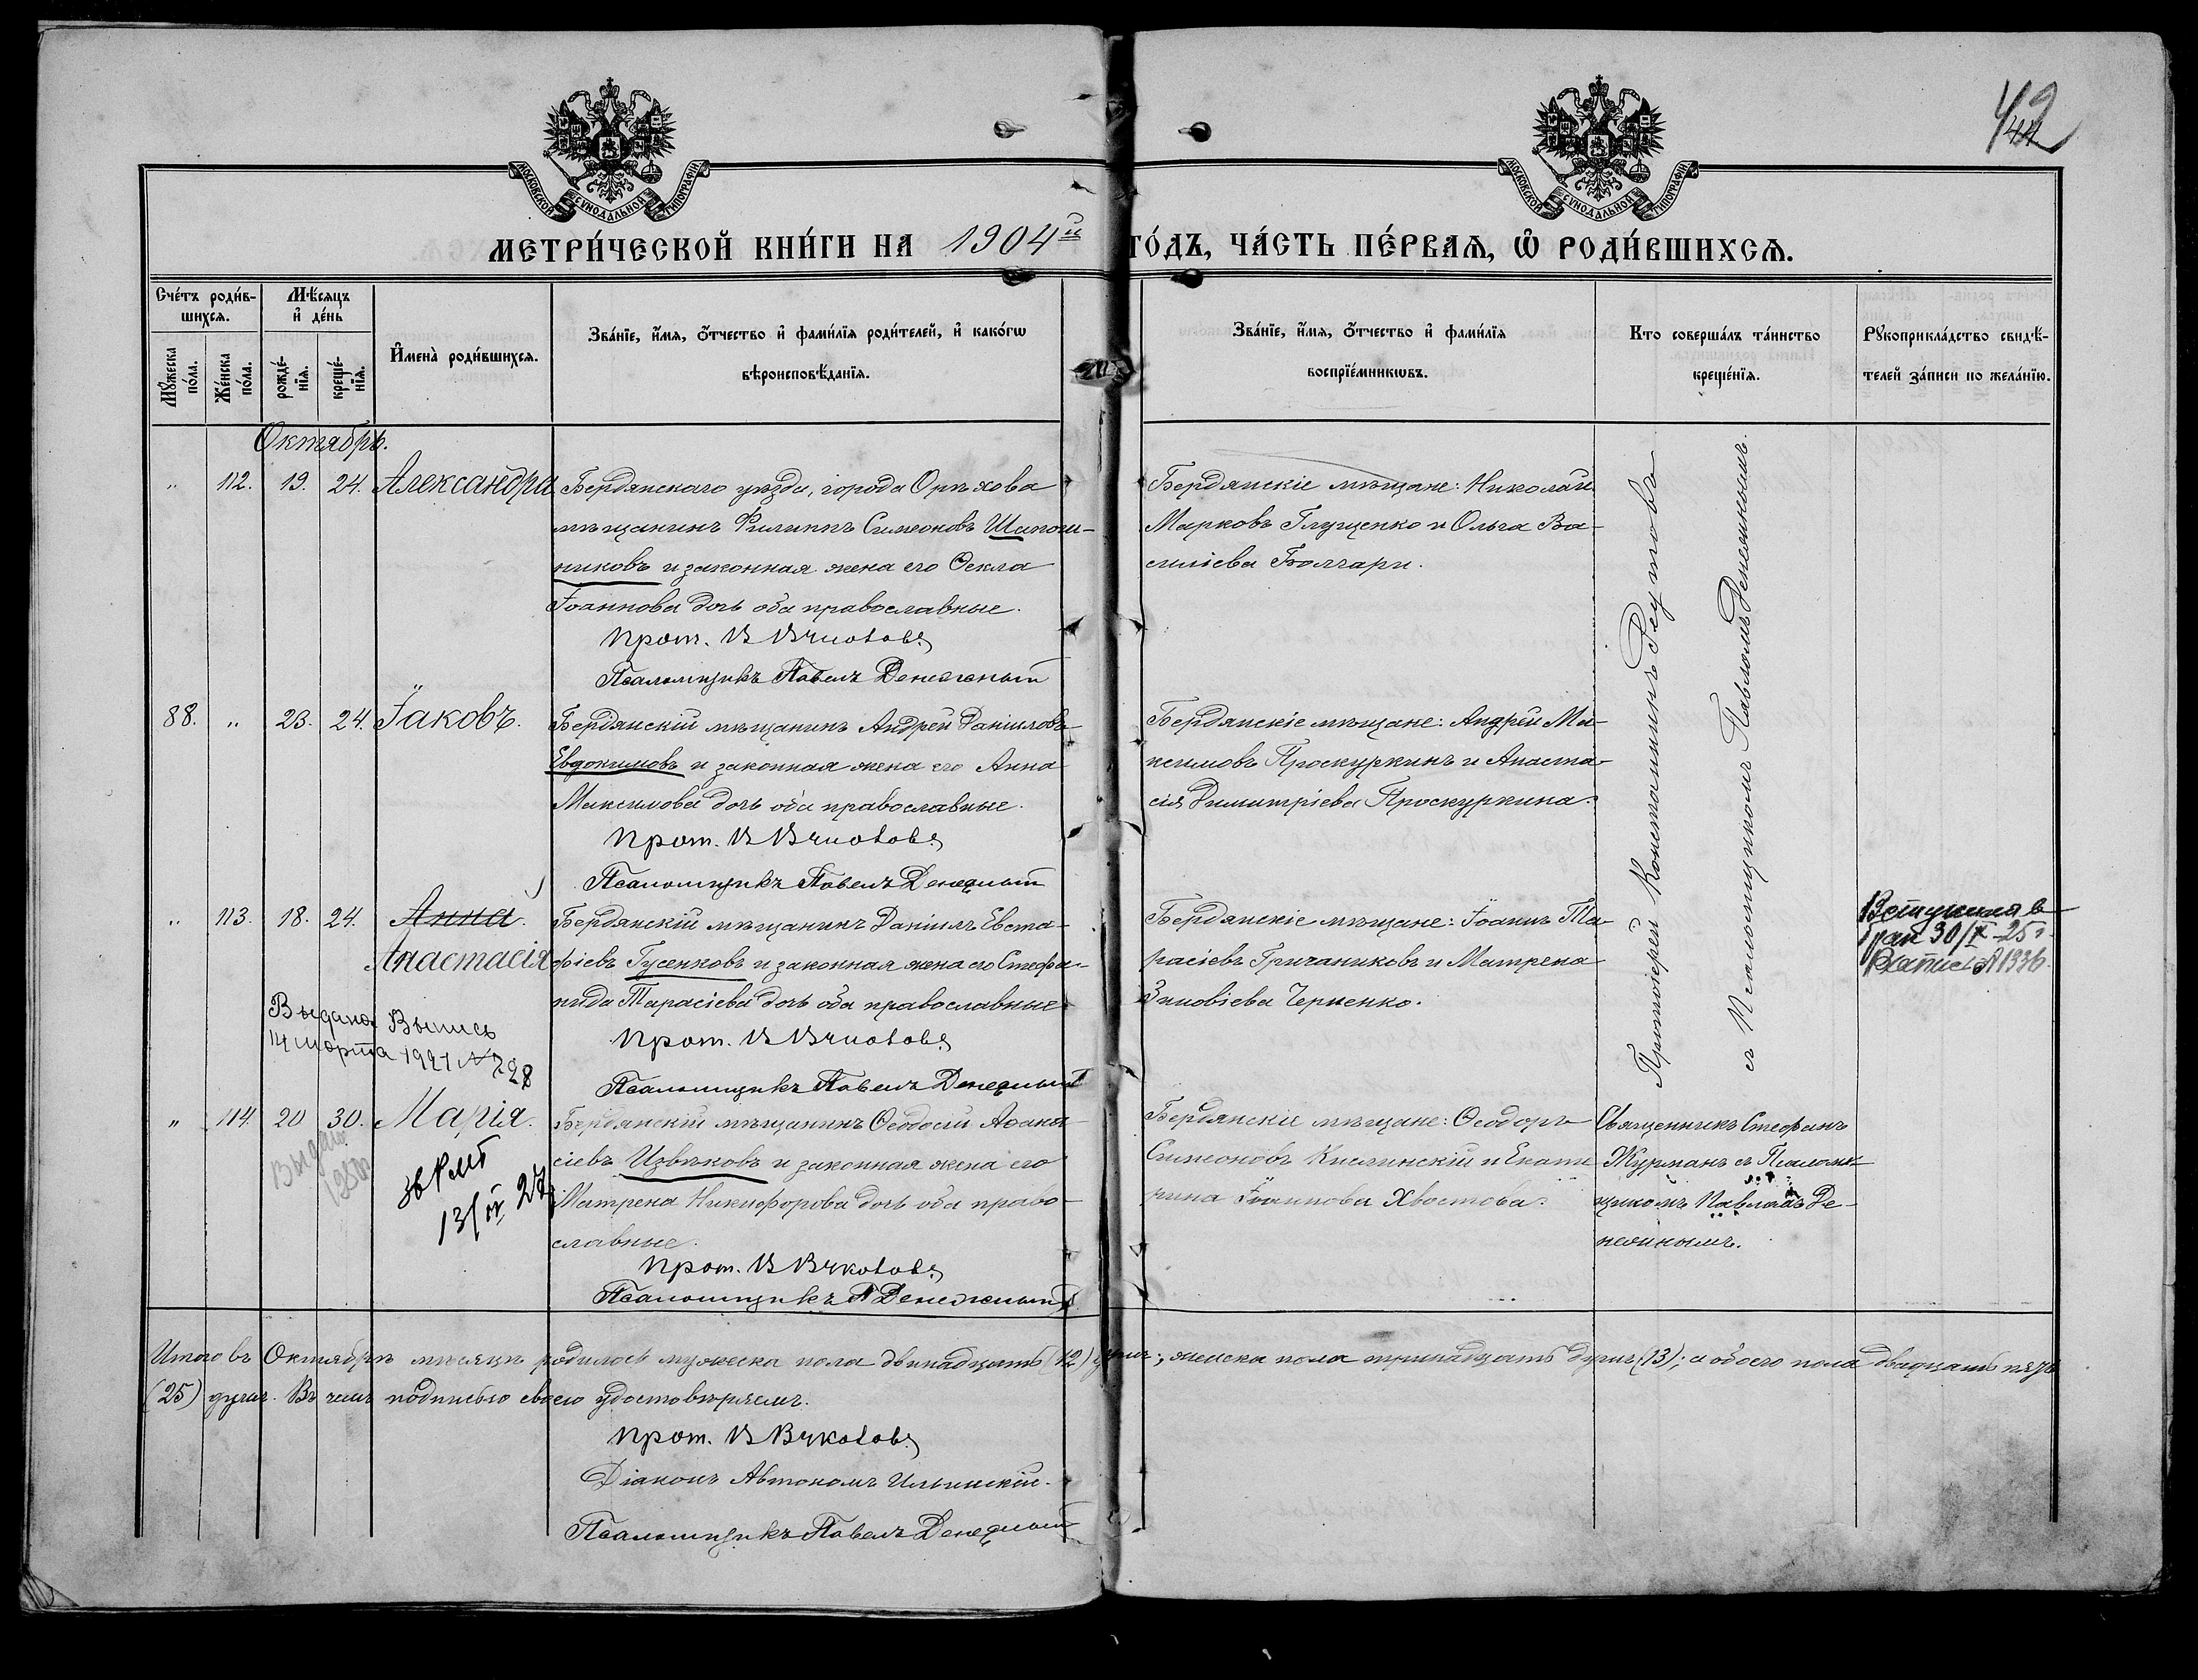 42
МОСКОВСКОЙ СУНОДАЛЬНОЙ ТИПОГРАФІИ
МОСКОВСКОЙ СУНОДАЛЬНОЙ ТИПОГРАФІИ
МЕТРИ́ЧЕСКОЙ КНИ́ГИ НА 1904й ГО́ДЪ, ЧА́СТЬ ПЕ́РВАЯ, Ѡ҃ РОДИ́ВШИХСЯ.
Сче́тъ роди́в-
шихся.
Мꙋжеска по́ла.
Же́нска по́ла.
Мѣ́сяцъ и҆ де́нь
рожде́-нїя.
креще́-нїя.
И҆мена̀ роди́вшихся.
Зва́нїе, и҆́мя, ѻ҆́тчество и҆ фами́лїя роди́телей, и҆ како́гѡ
вѣроисповѣ́данїя.
Зва́нїе, и҆́мя, ѻ҆́тчество и҆ фами́лїя
воспрїе́мникѡвъ.
Кто соверша́лъ та́инство
креще́нїя.
Рꙋкоприкла́дство свидѣ́-
телей за́писи по жела́нїю.
Октябрь.
„ 112. 19. 24. Александра
Бердянскаго уѣзда, города Орѣхова
мѣщанинъ Филиппъ Симеоновъ Шапош-
никовъ и законная жена его Ѳекла
Іоаннова дочь оба православные.
Прот.
Псаломщикъ Павелъ Денежный
Бердянскіе мѣщане: Николай
Марковъ Глущенко и Ольга Ва-
силіева Болгари.
Протоіерей Константинъ Реутовъ
съ Псаломщикомъ Павломъ Денежнымъ.
88. „ 23. 24. Іаковъ.
Бердянскій мѣщанинъ Андрей Даніиловъ
Евдокимовъ и законная жена его Анна
Максимова дочь оба православные.
Прот.
Псаломщикъ Павелъ Денежный
Бердянскіе мѣщане: Андрей Ма-
ксимовъ Проскуркинъ и Анаста-
сія Димитріева Проскуркина.
„ 113. 18. 24. Анна.
Анастасія
Бердянскій мѣщанинъ Даніилъ Евста-
фіевъ Гусенковъ и законная жена его Стефа-
нида Тарасіева дочь оба православные
Прот.
Псаломщикъ Павелъ Денежный
Бердянскіе мѣщане: Іоаннъ Та-
расіевъ Гричаниковъ и Матрена
Зиновіева Черненко.
Вступила в
брак 30/X-25 г.
Запись № 1336.
Выдана Выпись
14 марта 1921 № 228
„ 114. 20 30. Марія.
13/IV 27
Бердянскій мѣщанинъ Ѳеодосій Аѳана-
сіевъ Извѣковъ и законная жена его
Матрена Никифорова дочь оба право-
славные.
Прот.
Псаломщикъ П Денежный
Бердянскіе мѣщане: Ѳеодоръ
Симеоновъ Кислинскій и Екате
рина Іоаннова Хвостова.
Священникъ Стефанъ
Журманъ съ Псалом-
щикомъ Павломъ Де-
нежнымъ.
Итого въ Октябрѣ мѣсяцѣ родилось мужеска пола двѣнадцать (12) душъ; женска пола тринадцать душъ (13); а обоего пола двадцать пять
(25) душъ. Въ чемъ подписью своею удостовѣряемъ.
Прот.
Діаконъ Автономъ Ильинскій.
Псаломщикъ Павелъ Денежный